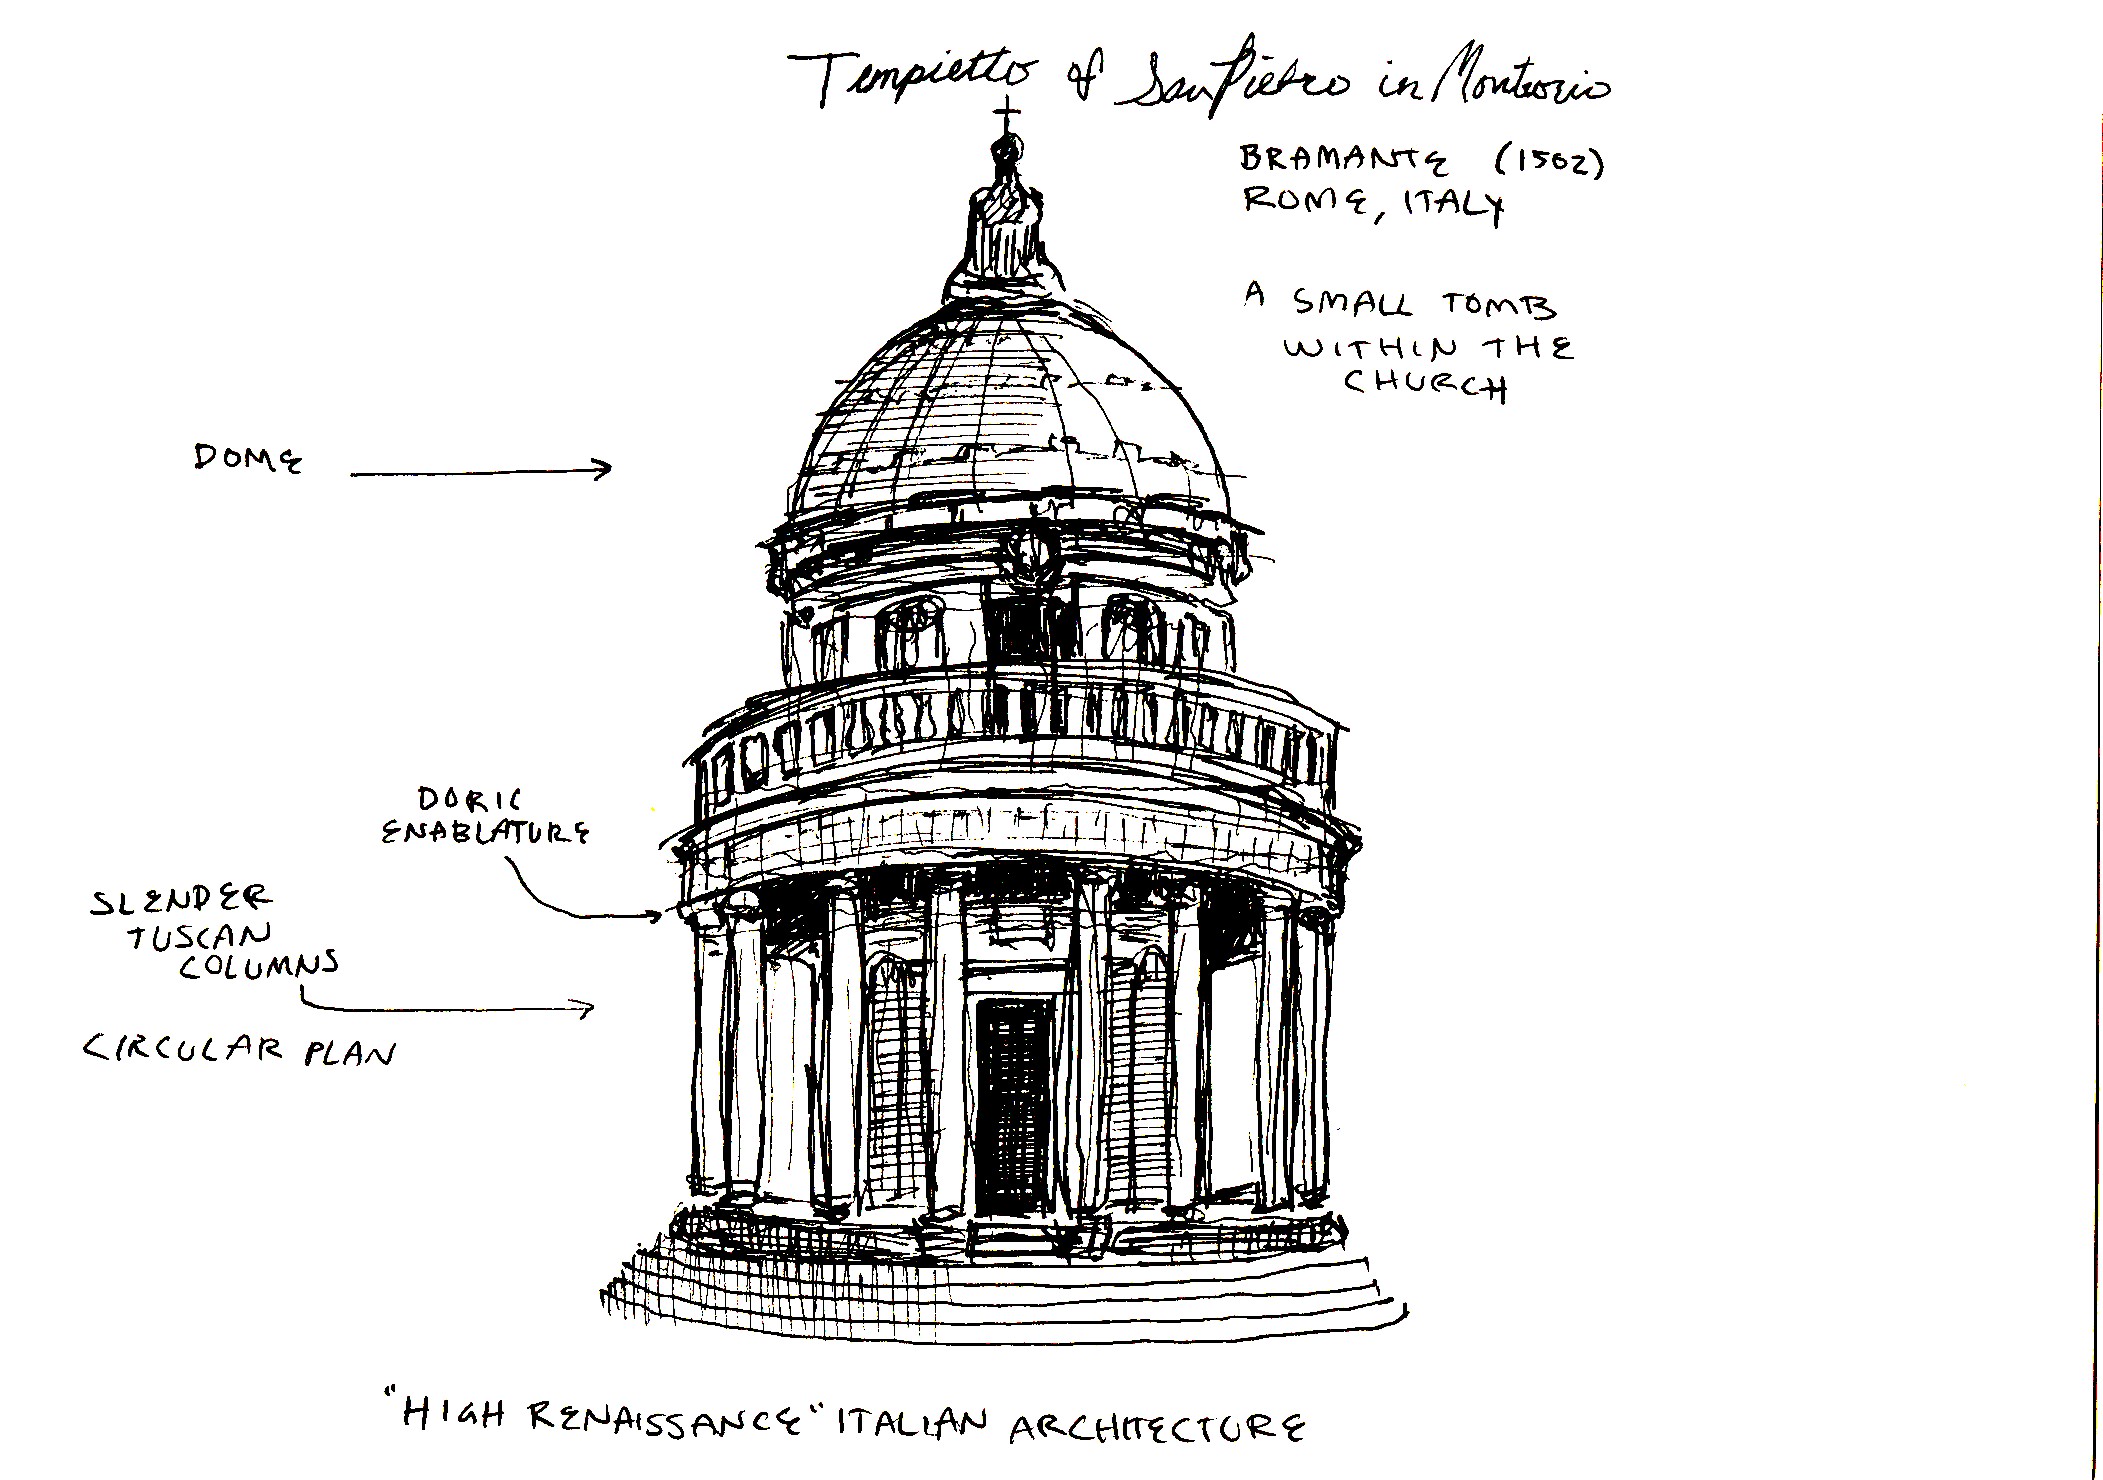 Tempietto of San Pietro in Montorio
BRAMANTE (1502)
ROME, ITALY
A SMALL TOMB
WITHIN THE
CHURCH
DOME
DORIC
ENABLATURE
SLENDER
TUSCAN
COLUMNS
CIRCULAR PLAN
"HIGH RENAISSANCE" ITALIAN ARCHITECTURE